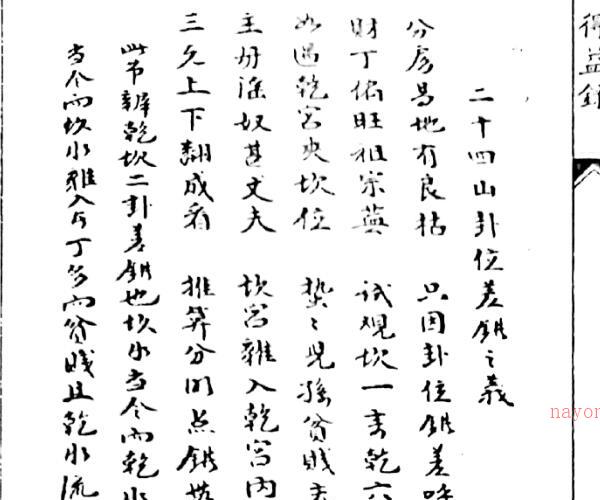 得益録
二十四山卦位差錯之義
分房昌地有良枯 只因卦位錯差
財丁俱旺祖宗 試觀坎一書乾六
如遇乾宮夾坎位 蟄〻兒孫貧賤
主母淫奴甚丈夫 坎宮雜入乾宮內
三爻上下翻成看 推算分明点錯
此節辨乾坎二卦差錯也坎水当令而乾水
当令而坎水雜入占丁多而貧賤且乾水流
nayon